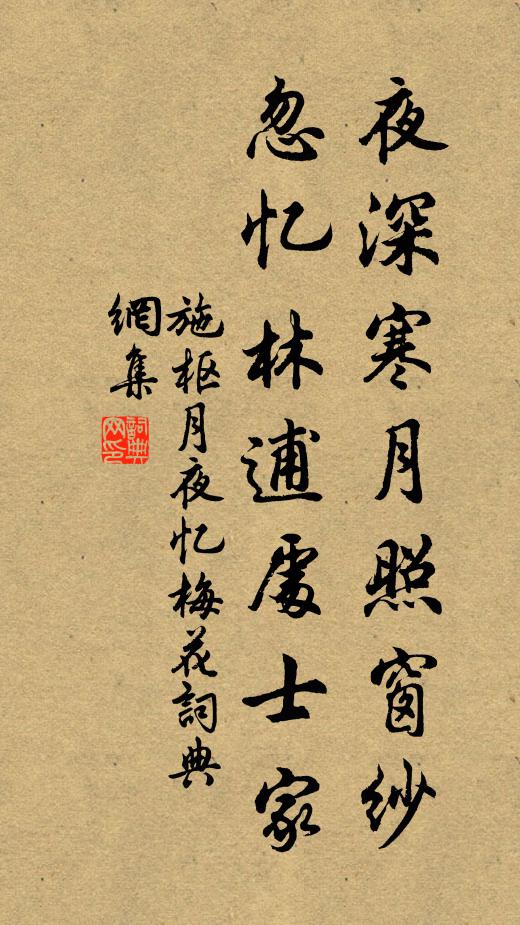 夜深寒月照窗纱
忽忆林逋處士家
施枢月夜忆梅花詞典
網集
詞典
网印